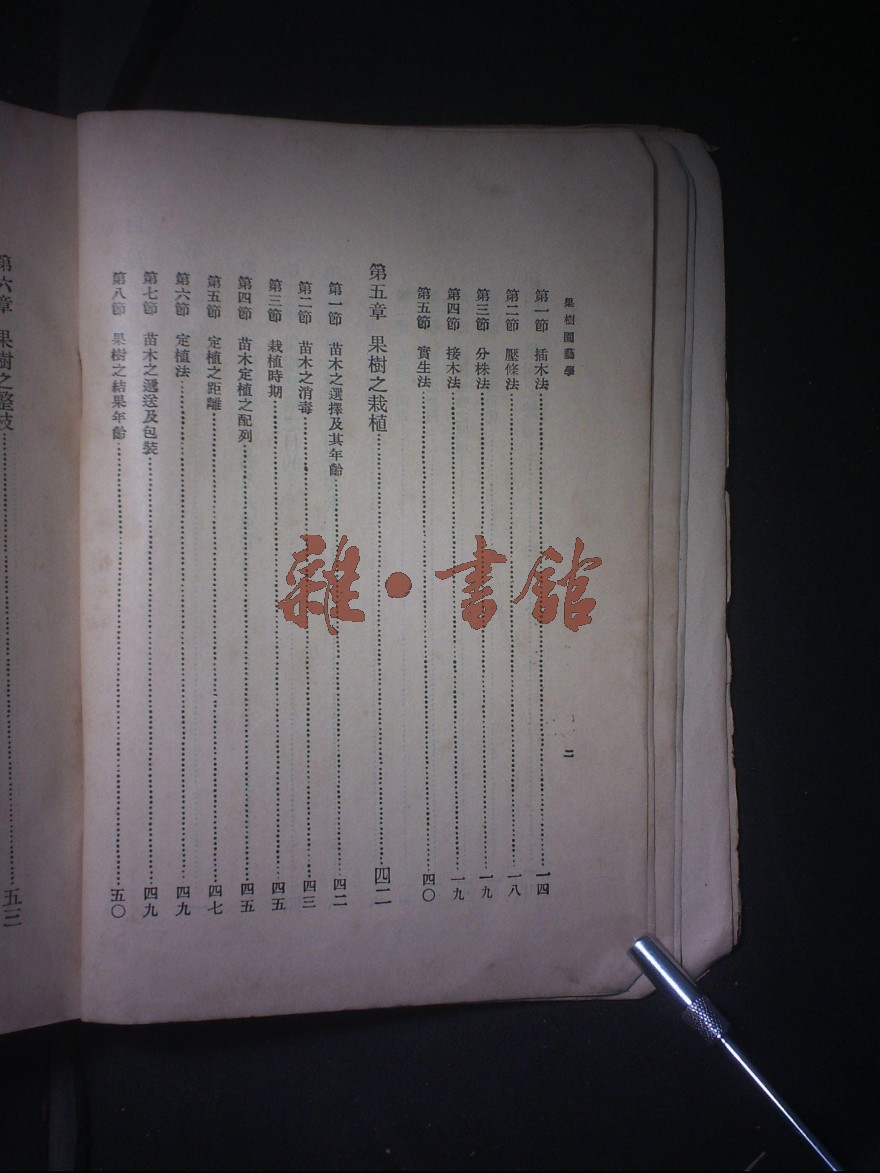 果樹園藝學
二
第一節 插木法 一四
第二節 壓條法 一八
第三節 分株法 一九
第四節 接木法 一九
第五節 實生法 四〇
第五章 果樹之栽植 四二
第一節 苗木之選擇及其年齡 四二
第二節 苗木之消毒 四三
第三節 栽植時期 四五
第四節 苗木定植之配列 四五
第五節 定植之距離 四七
第六節 定植法 四九
第七節 苗木之遞送及包裝 四九
第八節 果樹之結果年齡 五〇
第六章 果樹之整枝 五三
雜·書館